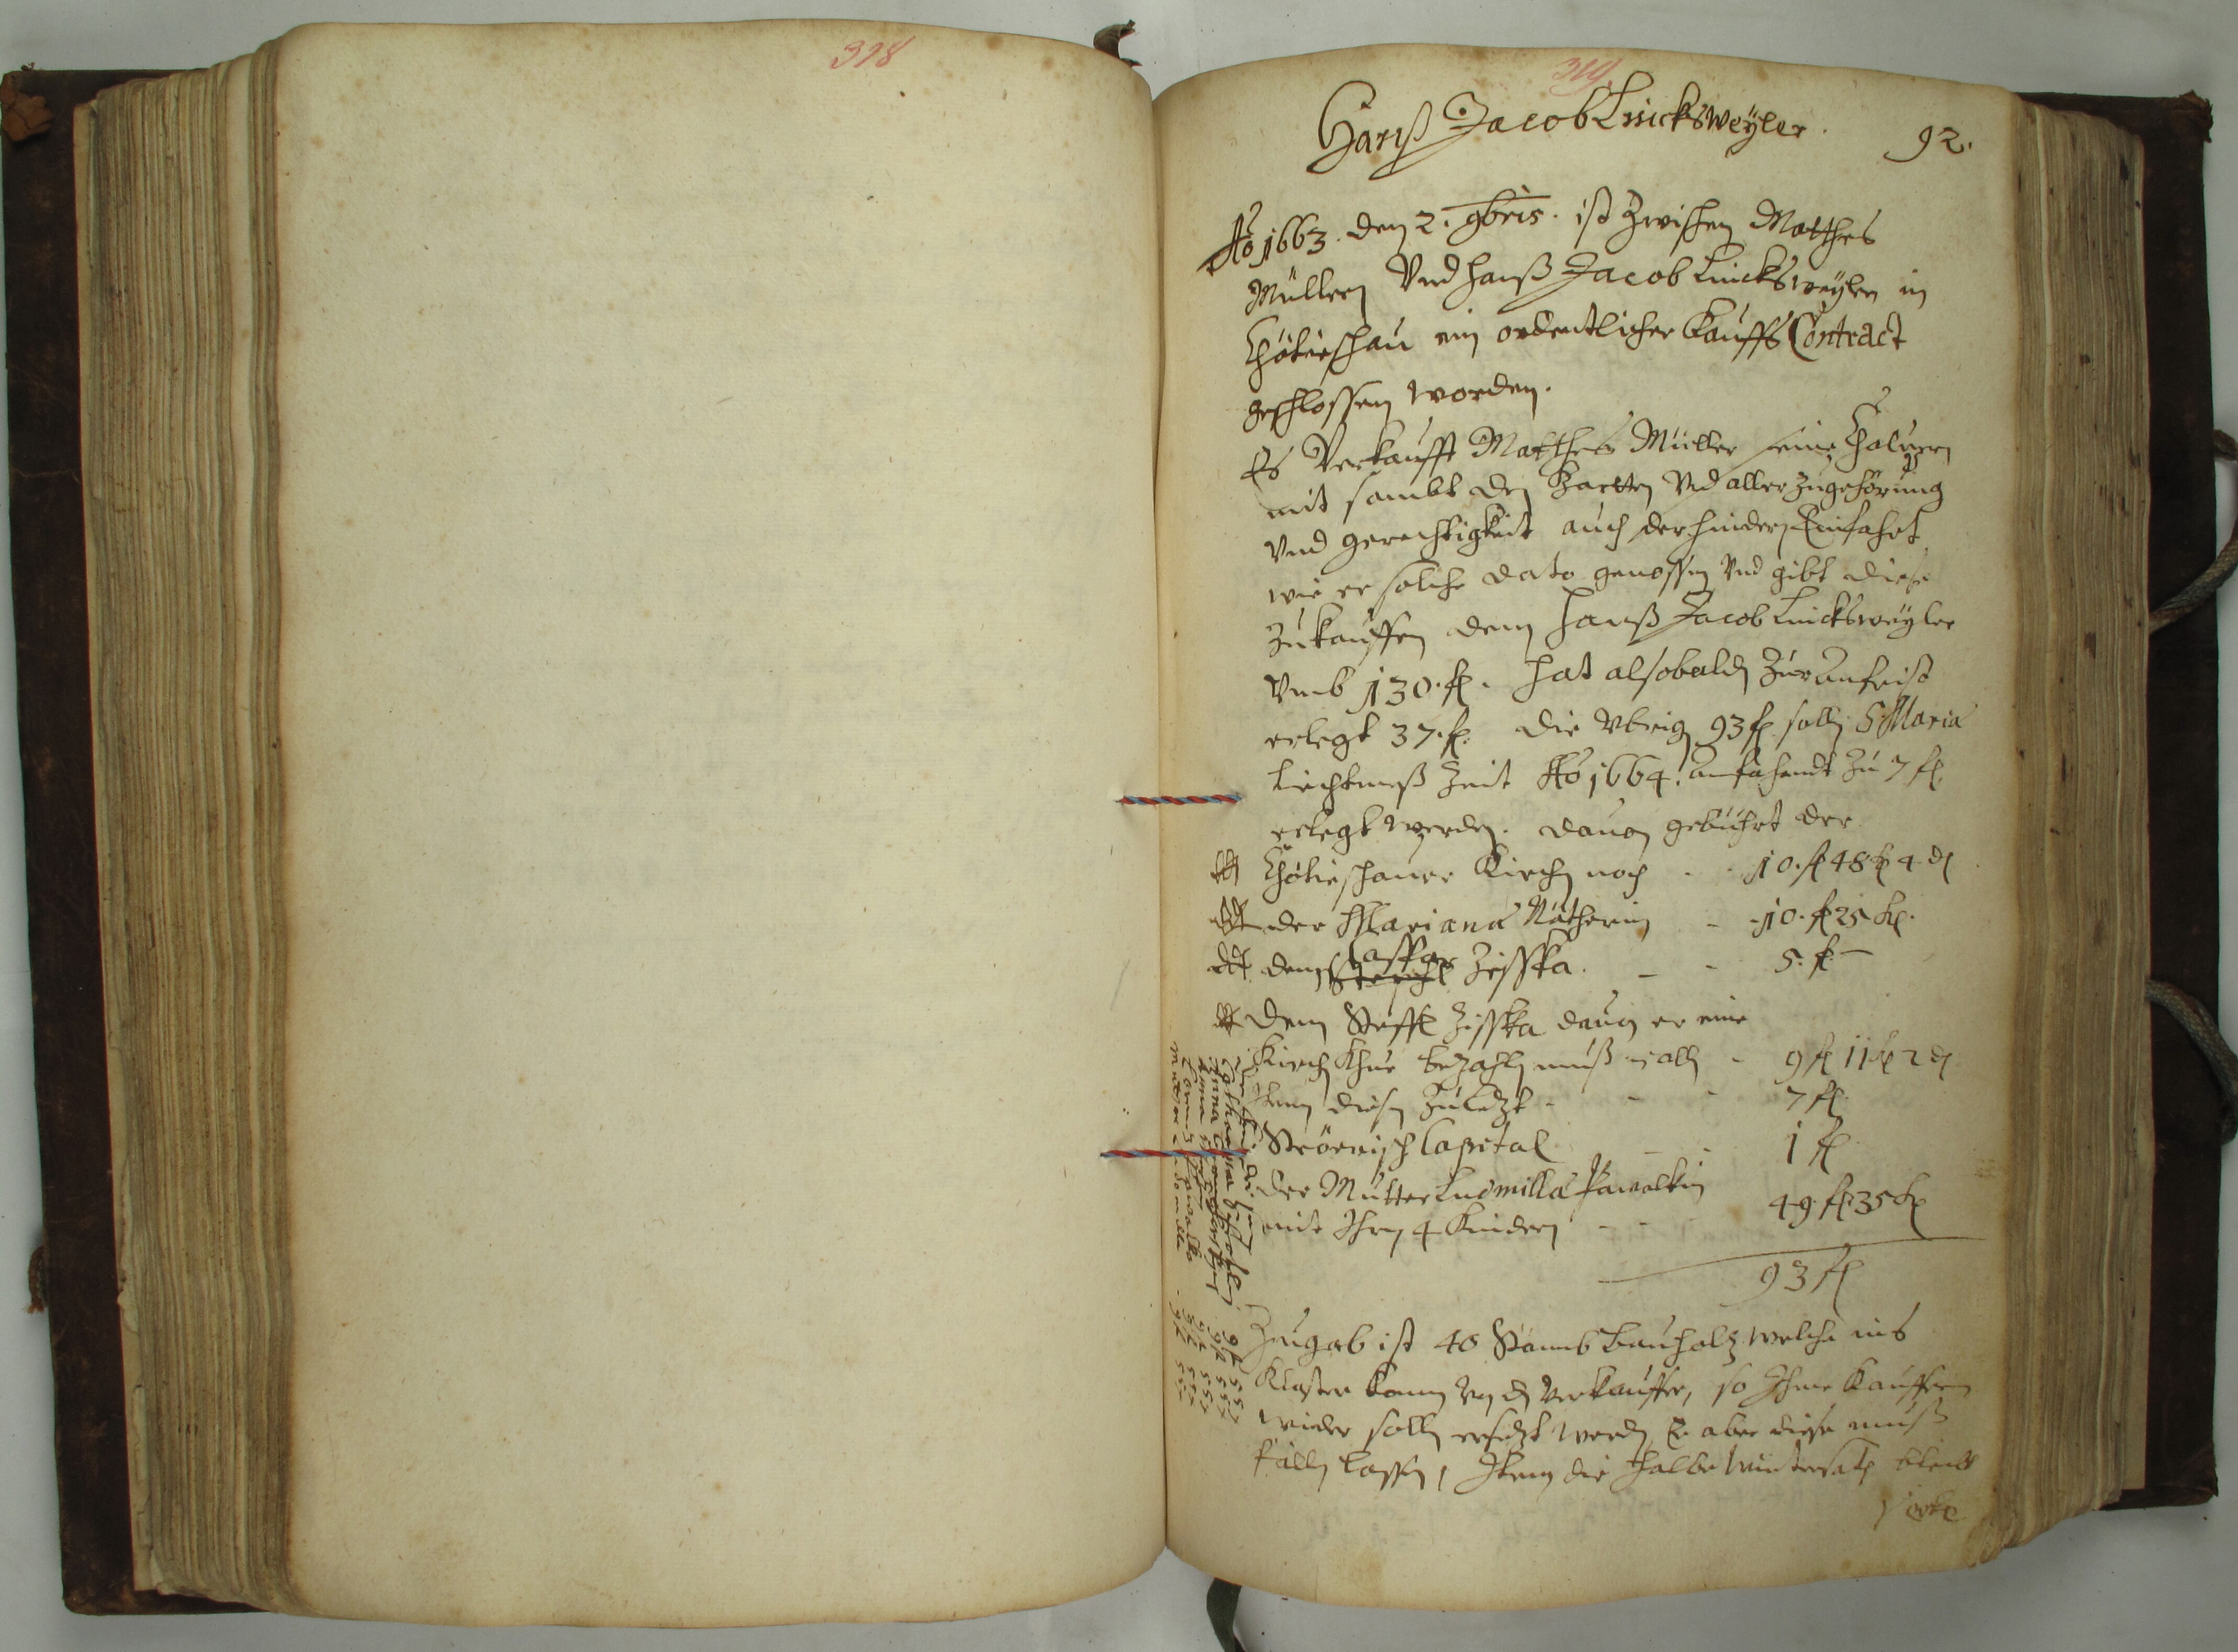 318
319
Hanß Jacob Linicksweÿler.
92.
Ao 1663. den 2. 9bris. ist Zwischen Matthes
Müllern Vnd Hanß Jacob Linicksweyler in
Chotieschau ein ordentlicher Kauffs Contract
geschlossen worden.
Es Verkaufft Matthes Müller seine Chalupen
mit sambt den Gartten Vnd aller Zugehörung
Vnd gerechtigkeit auch der hindern Einfahrt
wie er solche dato genossen Vnd gibt diese
Zukauffen dem Hanß Jacob Linicksweyler
Vmb 130. fl. hat alsobalden Zur Anfrist
erlegt 37. fl. die Vbrigen 93 fl sollen S Maria
Liechtmeß Zeit Ao 1664. Anfahendt Zu 7 fl
erlegt werden. dauon gebührt der
dt Chotieschauer Kirchen noch - - 10. fl 48 kr 4 d
dt der Mariana Nätherin - - 10. fl 25 kr.
dt dem Stephl Casspar Zisska. - - 5. fl -
dt dem Steffl Zisska dauon er eine
Kirchen Khue bezahlen muß in allen - 9 fl 11 kr 2 d
Item diesen Zuletzt - - - 7 fl
Strörnisch Capital - - 1 fl
der Mutter Ludmilla Pawalkin
mit Ihren 4 Kindern - - - 49. fl 35 kr
93 fl
Zugab ist 40 Stamb Bauholtz welche ins
Kloster kommen Von dem Verkauffer, so Ihme Kauffern
wieder sollen ersetzt werden Er aber diese muß
fällen lassen, Item die halbe Wintersath bleibt